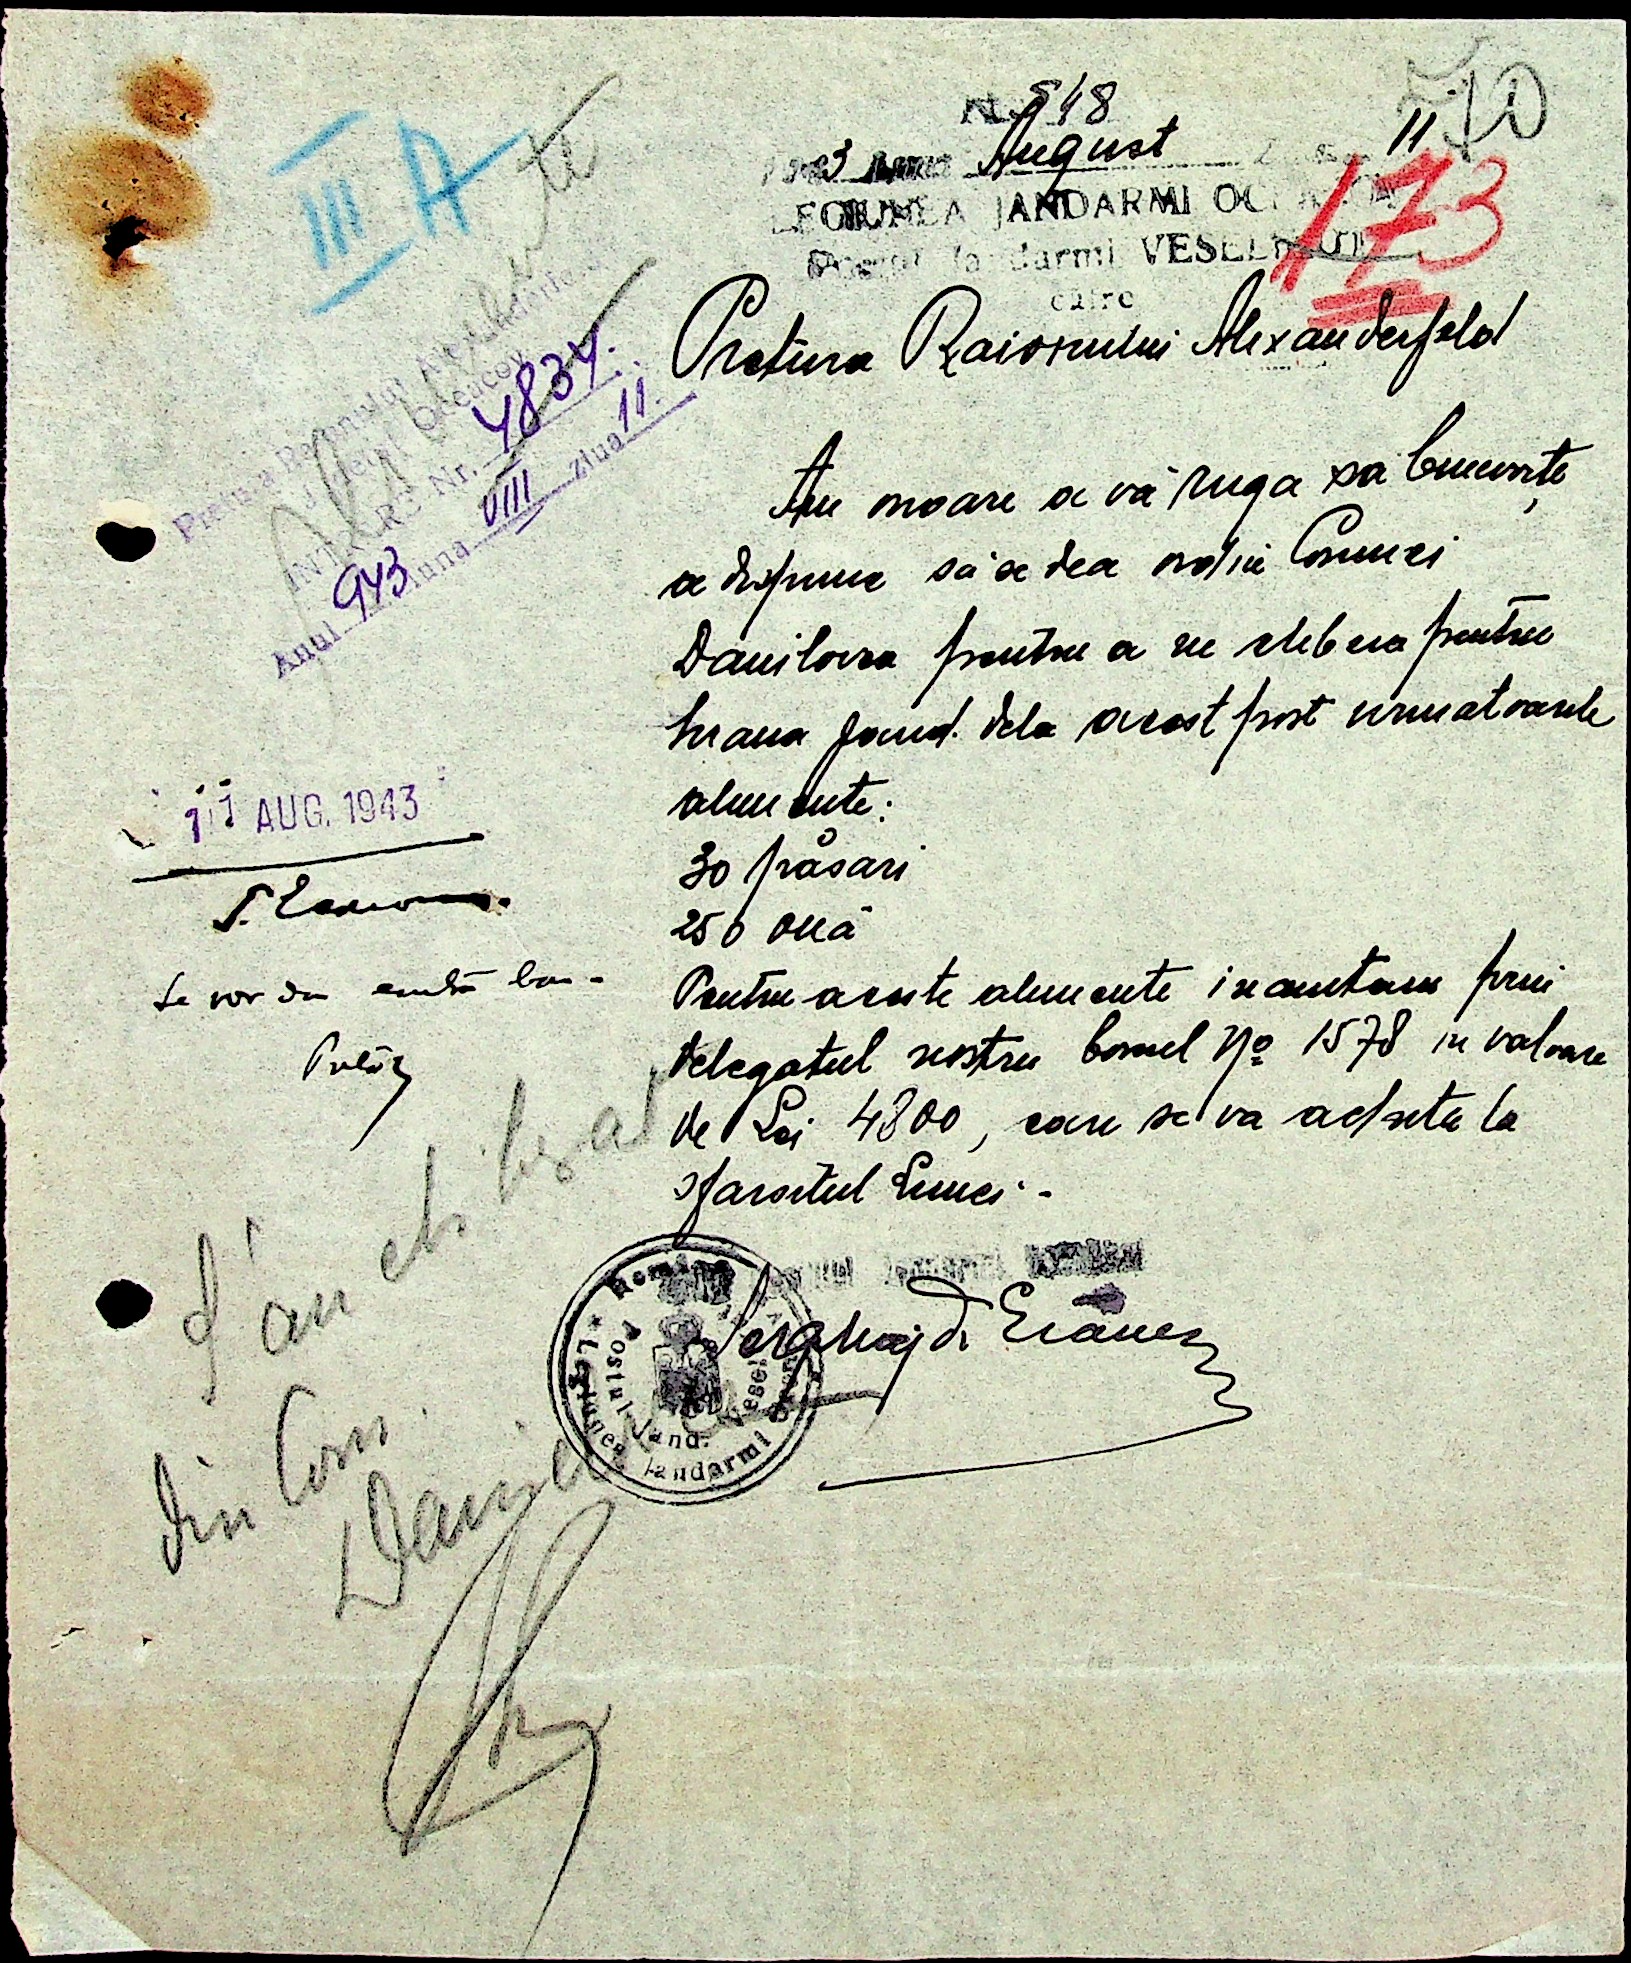 No. 548
1943 luna August Ziua 11
LEGIUNEA JANDARMI OCEACOV
Postul Jandarmi VESELINOVO
către
Pretura Raionului Alexanderfeld
Am onoare a vă ruga să bine voiți
a dispune să se dea ordin Comunei
Danilovca pentru a ne elibera pentru
hrana jand. dela acest post urmatoarele
alimente:
30 păsări
250 ouă
Pentru aceste alimente inaintam prin
delegatul nostru bonul No 1578 in valoare
de Lei 4800, care se va achita la
sfarsitul Lunei -
Postul Jandarmi
Legiunea Jandarmi
Postul Jand.
510
173
III A
Pretura Raionului Alexanderfeld
Județul Oceacov
INTRARE Nr. 4834
Anul 943 luna VIII Ziua 11
11 AUG. 1943
Se vor da contra bon -
Pretor
S'au eliberat
din Com.
Danilovca